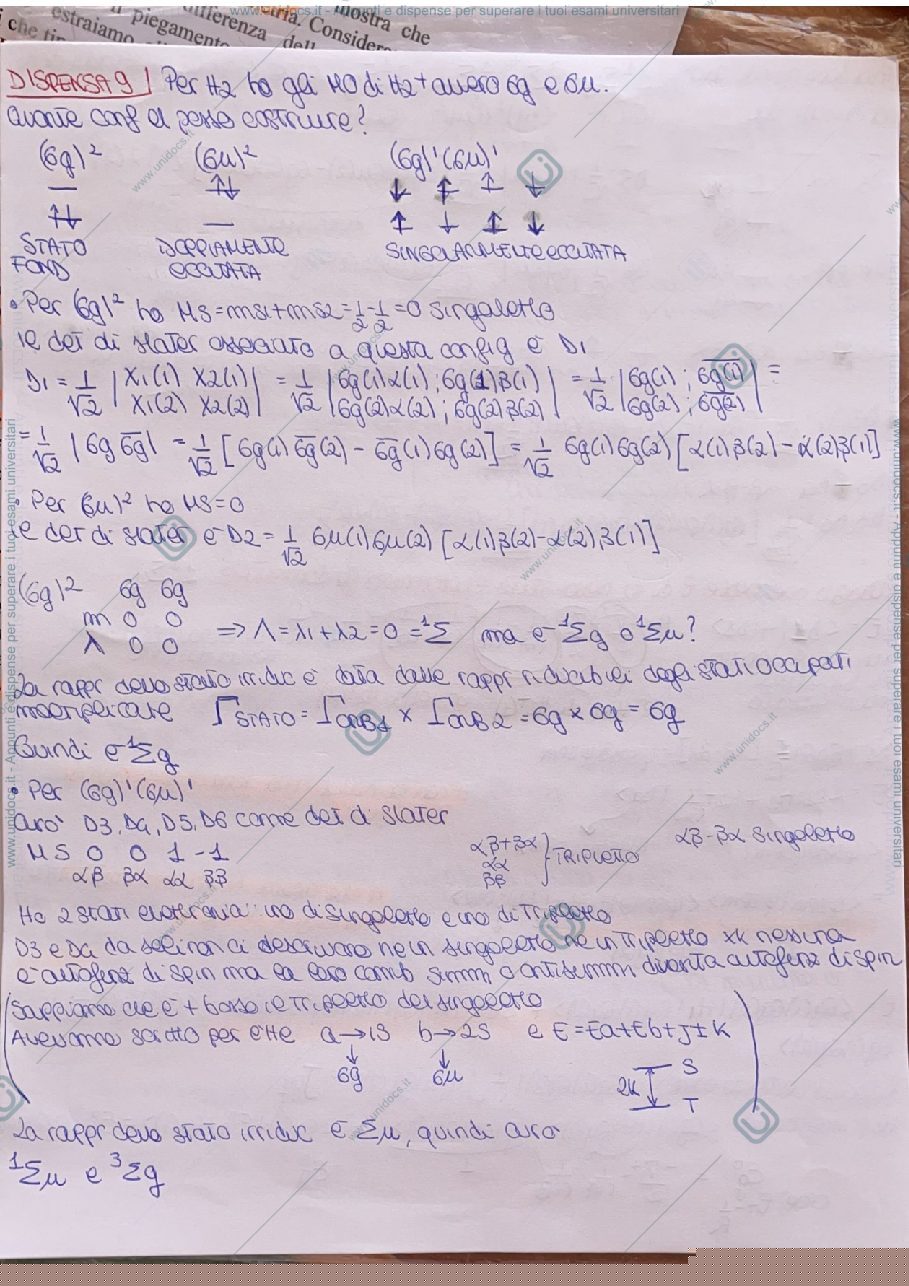 www.unidocs.it - Appunti e dispense per superare i tuoi esami universitari
estraiamo
piegamento
differenza
mostra che
Consider
DISPENSA 9 | Per H2 ho gli MO di H2+ ovvero σg e σu.
Quante conf el posso costruire?
(σg)² (σu)² (σg)¹(σu)¹
STATO FOND
DOPPIAMENTE ECCITATA
SINGOLARMENTE ECCITATA
• Per (σg)² ho MS=ms1+ms2=1/2-1/2=0 singoletto
il det di slater associato a questa config è D1
D1 = 1/√2 |X1(1) X2(1)| = 1/√2 |σg(1)α(1) ; σg(1)β(1)| = 1/√2 |σg(1) ; σ̅g̅(1)| =
|X1(2) X2(2)| |σg(2)α(2) ; σg(2)β(2)| |σg(2) ; σ̅g̅(2)|
= 1/√2 |σg σ̅g̅| = 1/√2 [σg(1)σ̅g̅(2) - σ̅g̅(1)σg(2)] = 1/√2 σg(1)σg(2) [α(1)β(2)-α(2)β(1)]
• Per (σu)² ho MS=0
il det di slater è D2 = 1/√2 σu(1)σu(2) [α(1)β(2)-α(2)β(1)]
(σg)² σg σg
m 0 0
λ 0 0
=> Λ=λ1+λ2=0 = ¹Σ ma è ¹Σg o ¹Σu?
La rappr dello stato irriduc è data dalle rappr riducibili degli stati occupati
moltiplicate Γstato = Γorb1 × Γorb2 = σg × σg = σg
Quindi è ¹Σg
• Per (σg)¹(σu)¹
avrò D3, D4, D5, D6 come det di slater
MS 0 0 1 -1
αβ βα αα ββ
αβ+βα
αα
ββ
} TRIPLETTO
αβ-βα singoletto
Ho 2 stati elettronici: uno di singoletto e uno di tripletto
D3 e D4 da soli non ci descrivono nè un singoletto nè un tripletto xk nessuna
è autofunz di spin ma la loro comb simm o antisimm diventa autofunz di spin
Sappiamo che è + basso il tripletto del singoletto
Avevamo scritto per l'He a→1S b→2S e E=Ea+Eb+J±K
σg σu
2K S
T
La rappr dello stato irriduc è Σu, quindi avrò
¹Σu e ³Σg